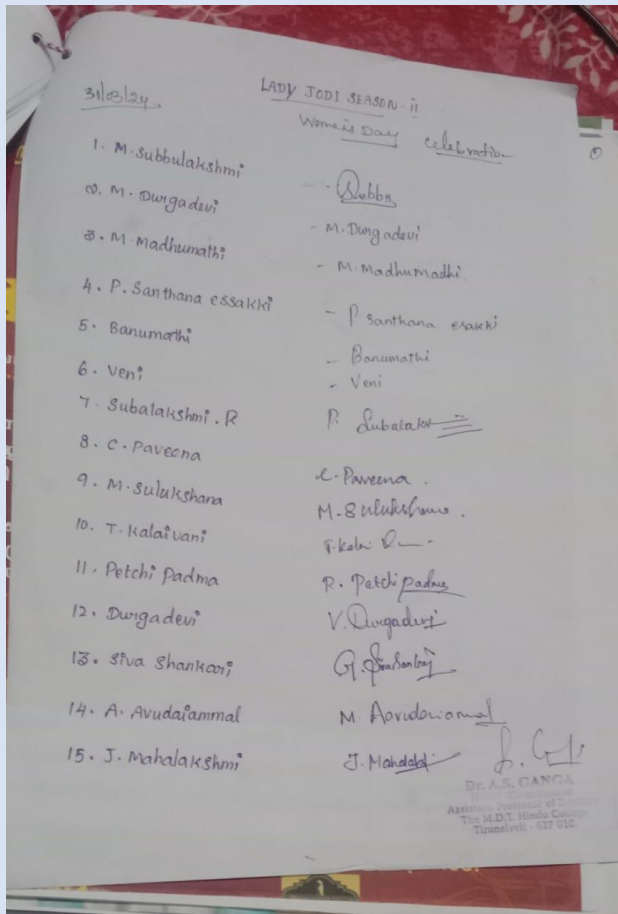 31/03/24
LADY JODI SEASON - ii
Women's Day celebration
1. M. Subbulakshmi - Subbu
2. M. Durgadevi - M. Durgadevi
3. M. Madhumathi - M. Madhumadhi
4. P. Santhana essakki - P Santhana esakki
5. Banumathi - Banumathi
6. Veni - Veni
7. Subalakshmi. R
8. C. Paveena C. Paveena.
9. M. Sulukshana M. Sulukshana.
10. T. Kalaivani
11. Petchi Padma R. Petchi padma
12. Durgadevi V. Durgadevi
13. Siva Shankari
14. A. Avudaiammal
15. J. Mahalakshmi
Dr. A.S. GANGA
Assistant Professor of
The M.D.T. Hindu College
Tirunelveli - 627 010.